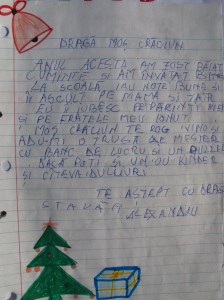 DRAGĂ MOȘ CRĂCIUN
ANUL ACESTA AM FOST BĂIAT
CUMINTE ȘI AM ÎNVĂȚAT BINE
LA ȘCOALĂ. IAU NOTE BUNE ȘI
ÎI ASCULT PE MAMA ȘI TATA
EU ÎI IUBESC PE PĂRINȚII MEI
ȘI PE FRATELE MEU IONUȚ
MOȘ CRĂCIUN TE ROG VINO ȘI
ADU-MI O TRUSĂ DE MEȘTER
CU BANC DE LUCRU ȘI UN
DACĂ POȚI ȘI UN OU KINDER
ȘI CÎTEVA DULCIURI
TE AȘTEPT CU DRAG
ALEXANDRU